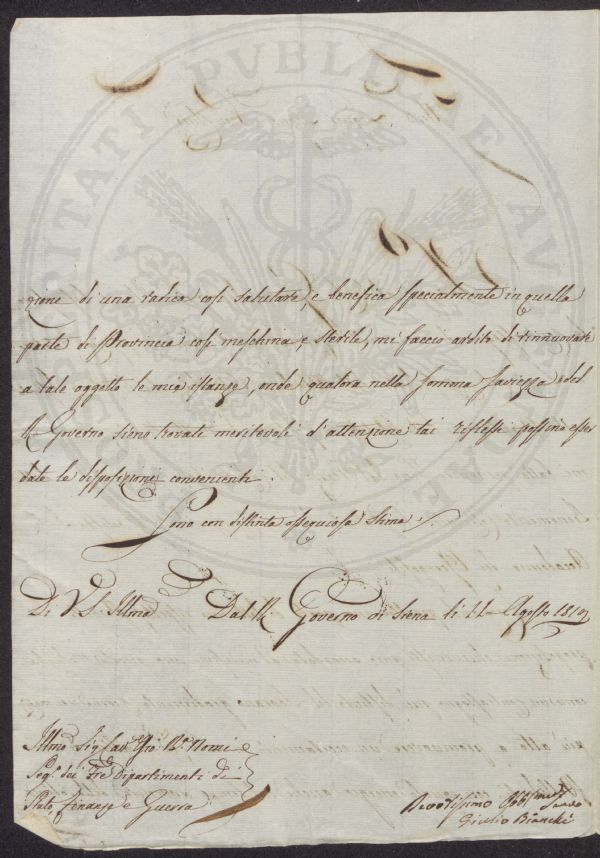 zione di una radica così salutare, e benefica specialmente in quella
parte di Provincia così meschina, e sterile, mi faccio ardito di rinnuovare
a tale oggetto le mie istanze, onde qualora nella somma saviezza del
R. Governo sieno trovati meritevoli d'attenzione tai riflessi possino esser
date le disposizioni convenienti.
Sono con distinta ossequiosa stima
Di V. S. Illma Dal R. Governo di Siena li 11 Agosto
Illmo Sig. Cav. Gio. Ba. Nomi
Seg. dei Tre Dipartimenti di
Stato, Finanze e Guerra
Devotissimo Obb Servo
Giulio Bianchi